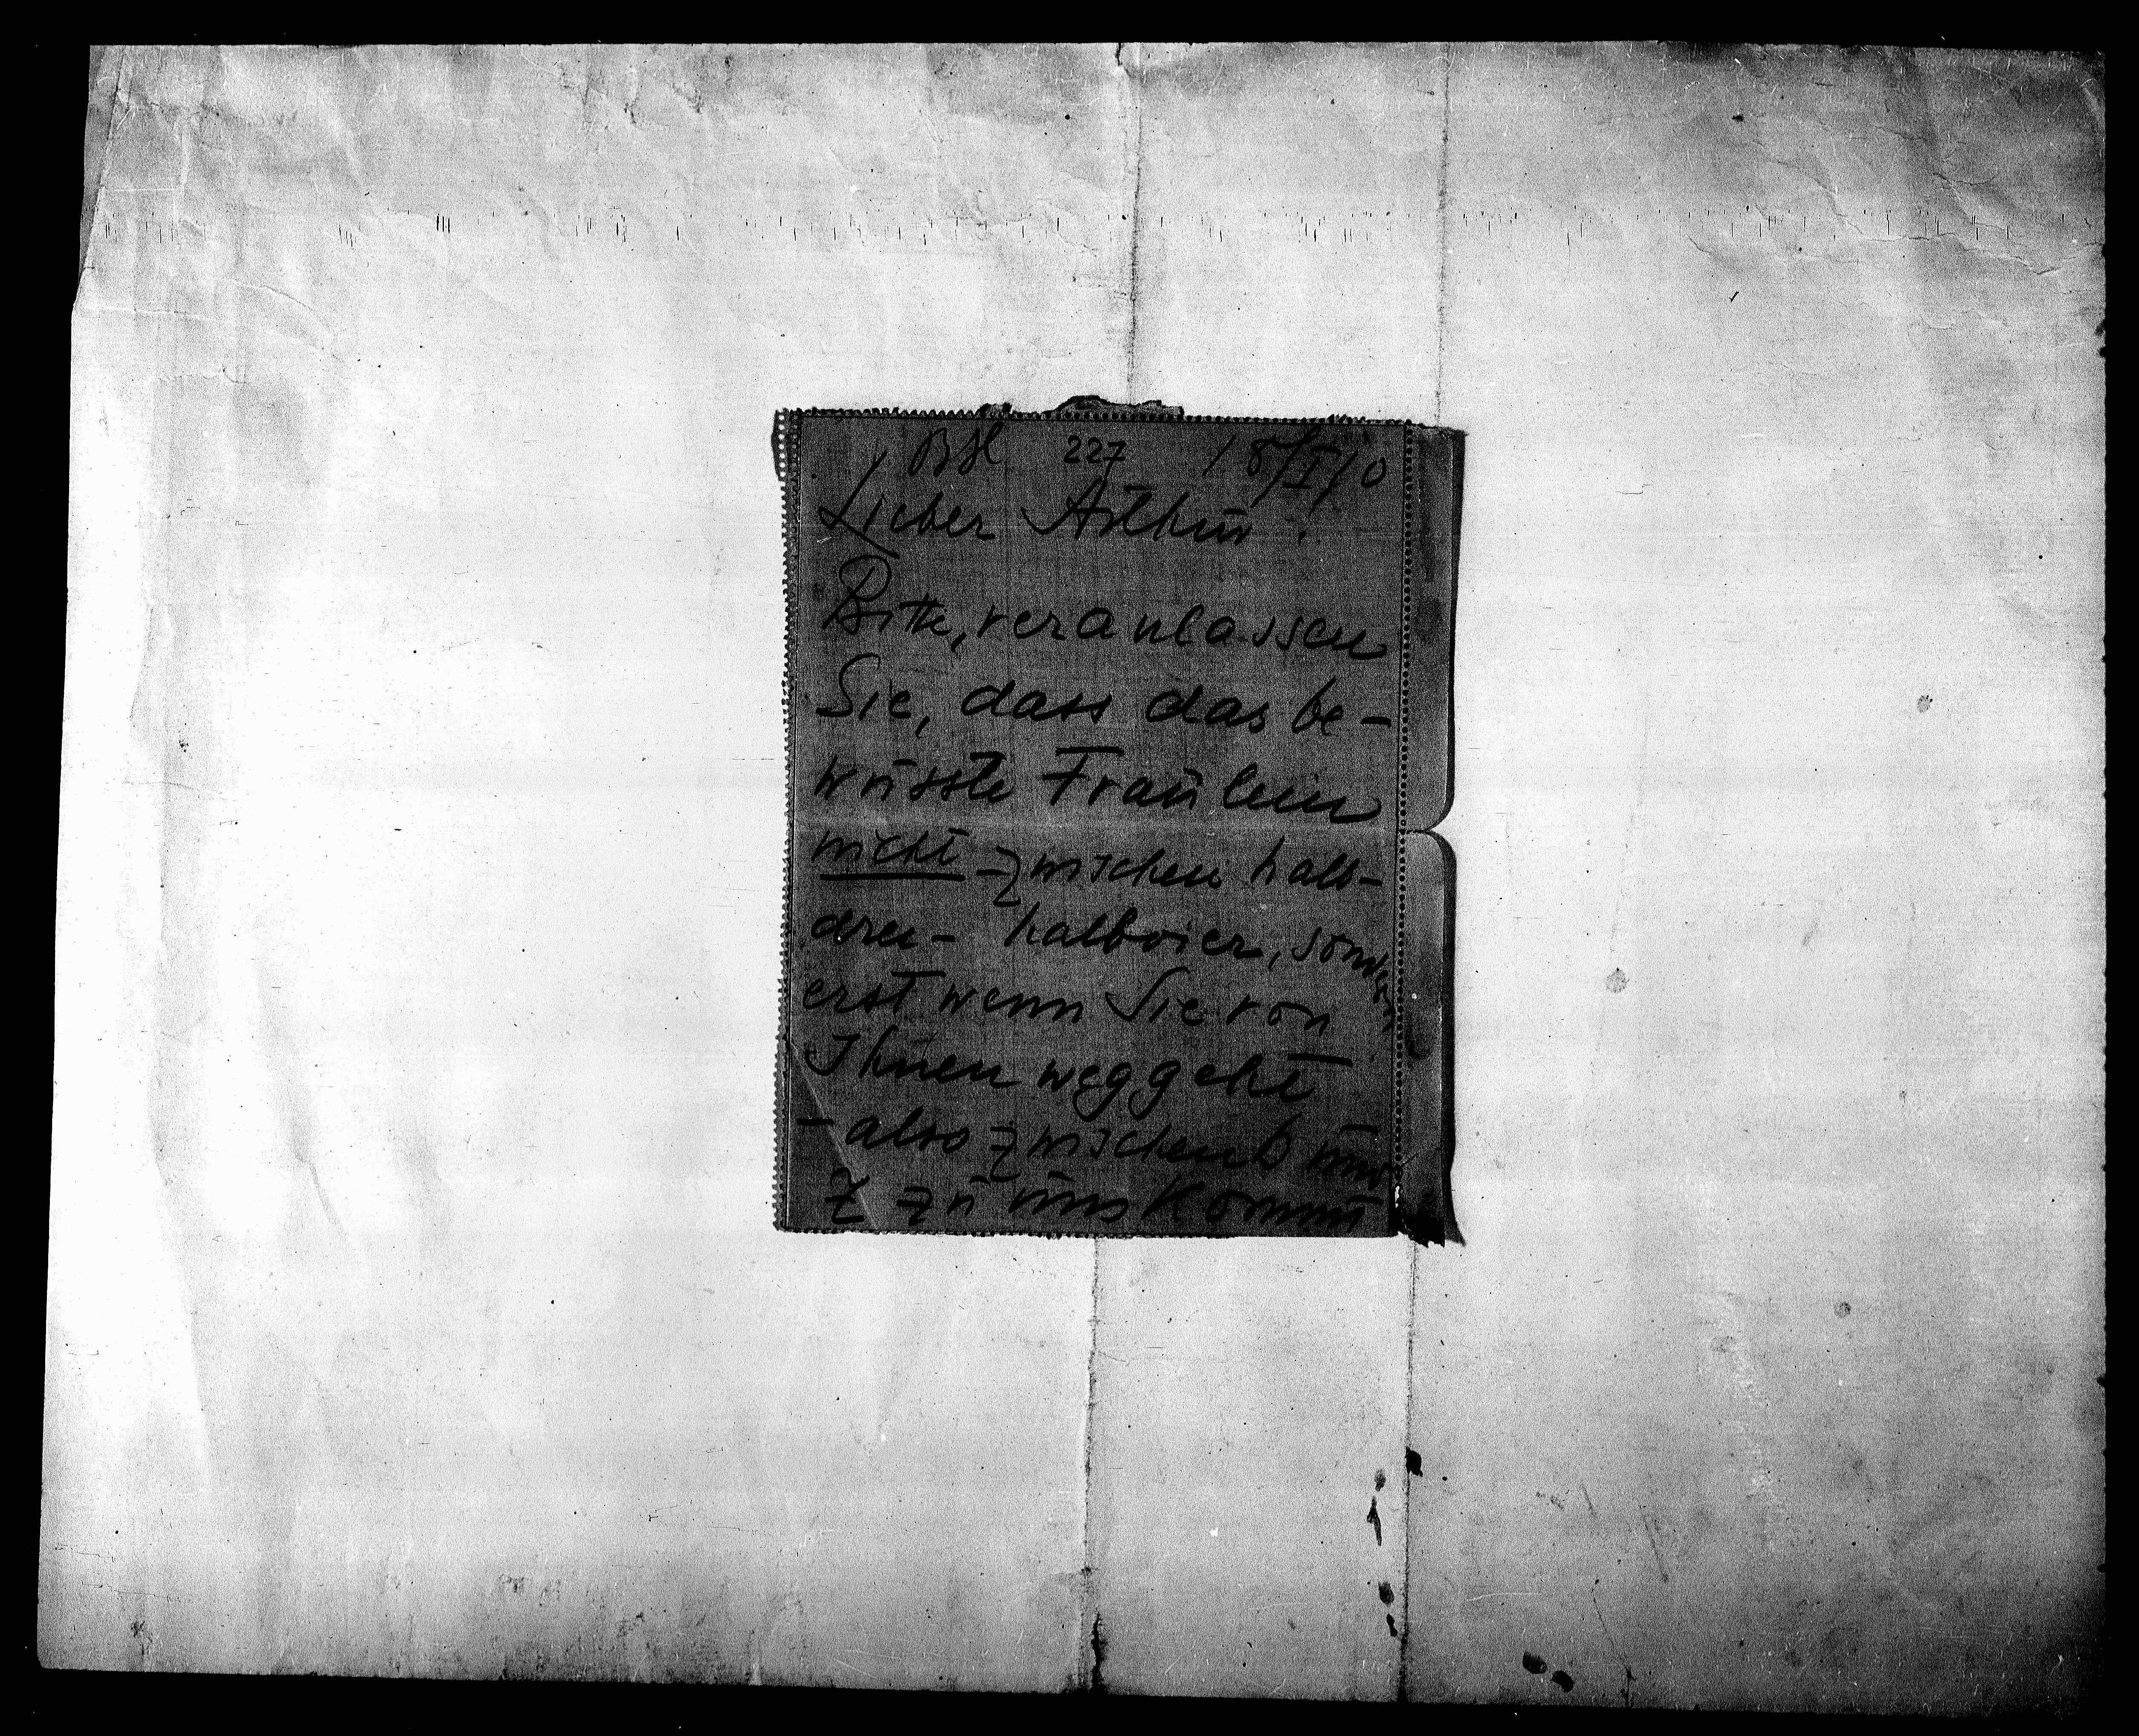 BH 227 18/I 10
Lieber Arthur!
Bitte, veranlassen
Sie, dass das be-
wusste Fräulein
nicht zwischen halb-
drei - halbvier, sondern
erst wenn Sie von
Ihnen weggeht
- also zwischen 6 und
7 zu uns kommt